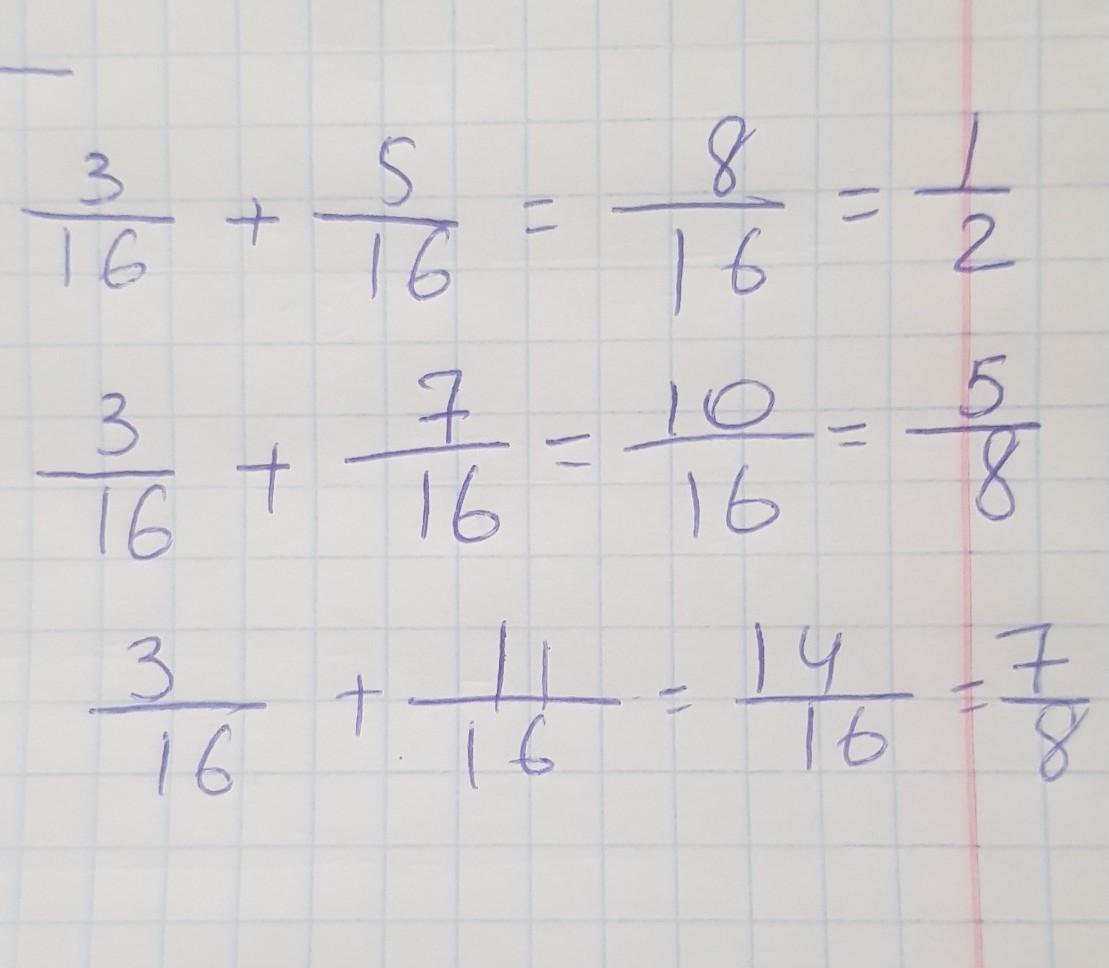 3/16 + 5/16 = 8/16 = 1/2
3/16 + 7/16 = 10/16 = 5/8
3/16 + 11/16 = 14/16 = 7/8